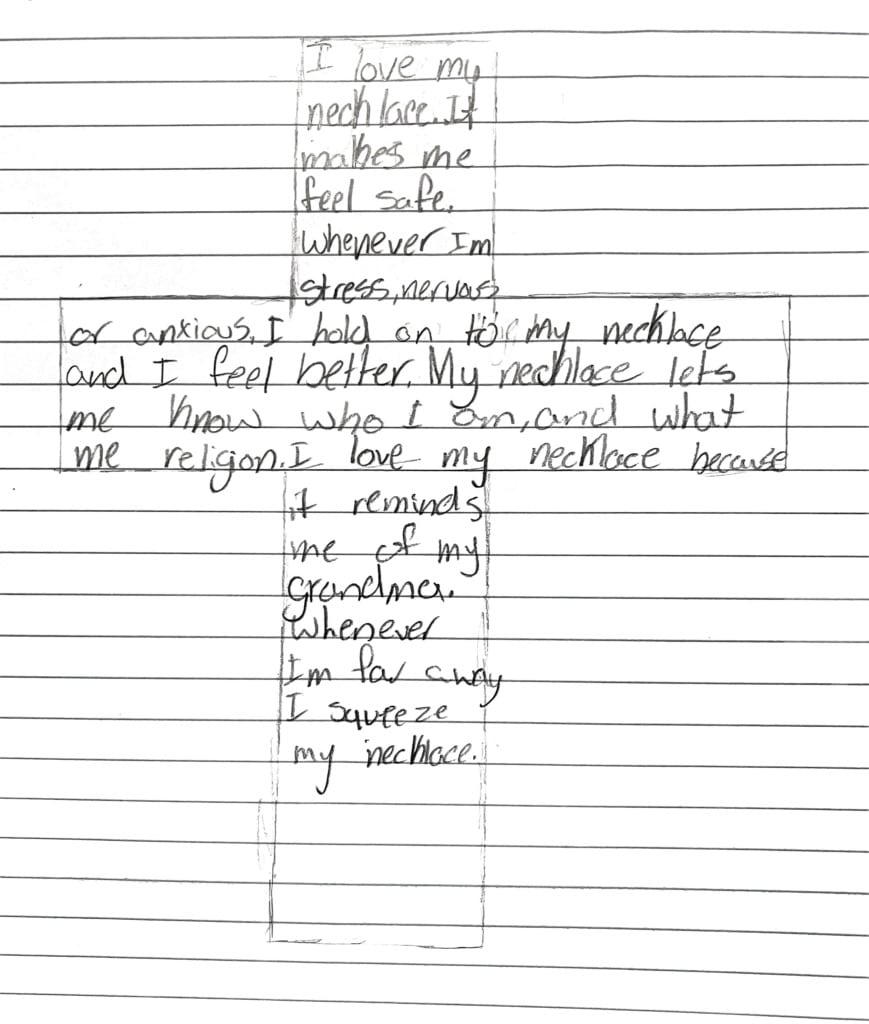 I love my
necklace. It
makes me
feel safe.
Whenever Im
stress, nervous
or anxious, I hold on to my necklace
and I feel better. My necklace lets
me know who I am, and what
me religon. I love my necklace because
it reminds
me of my
grandma.
Whenever
Im far away
I squeeze
my necklace.